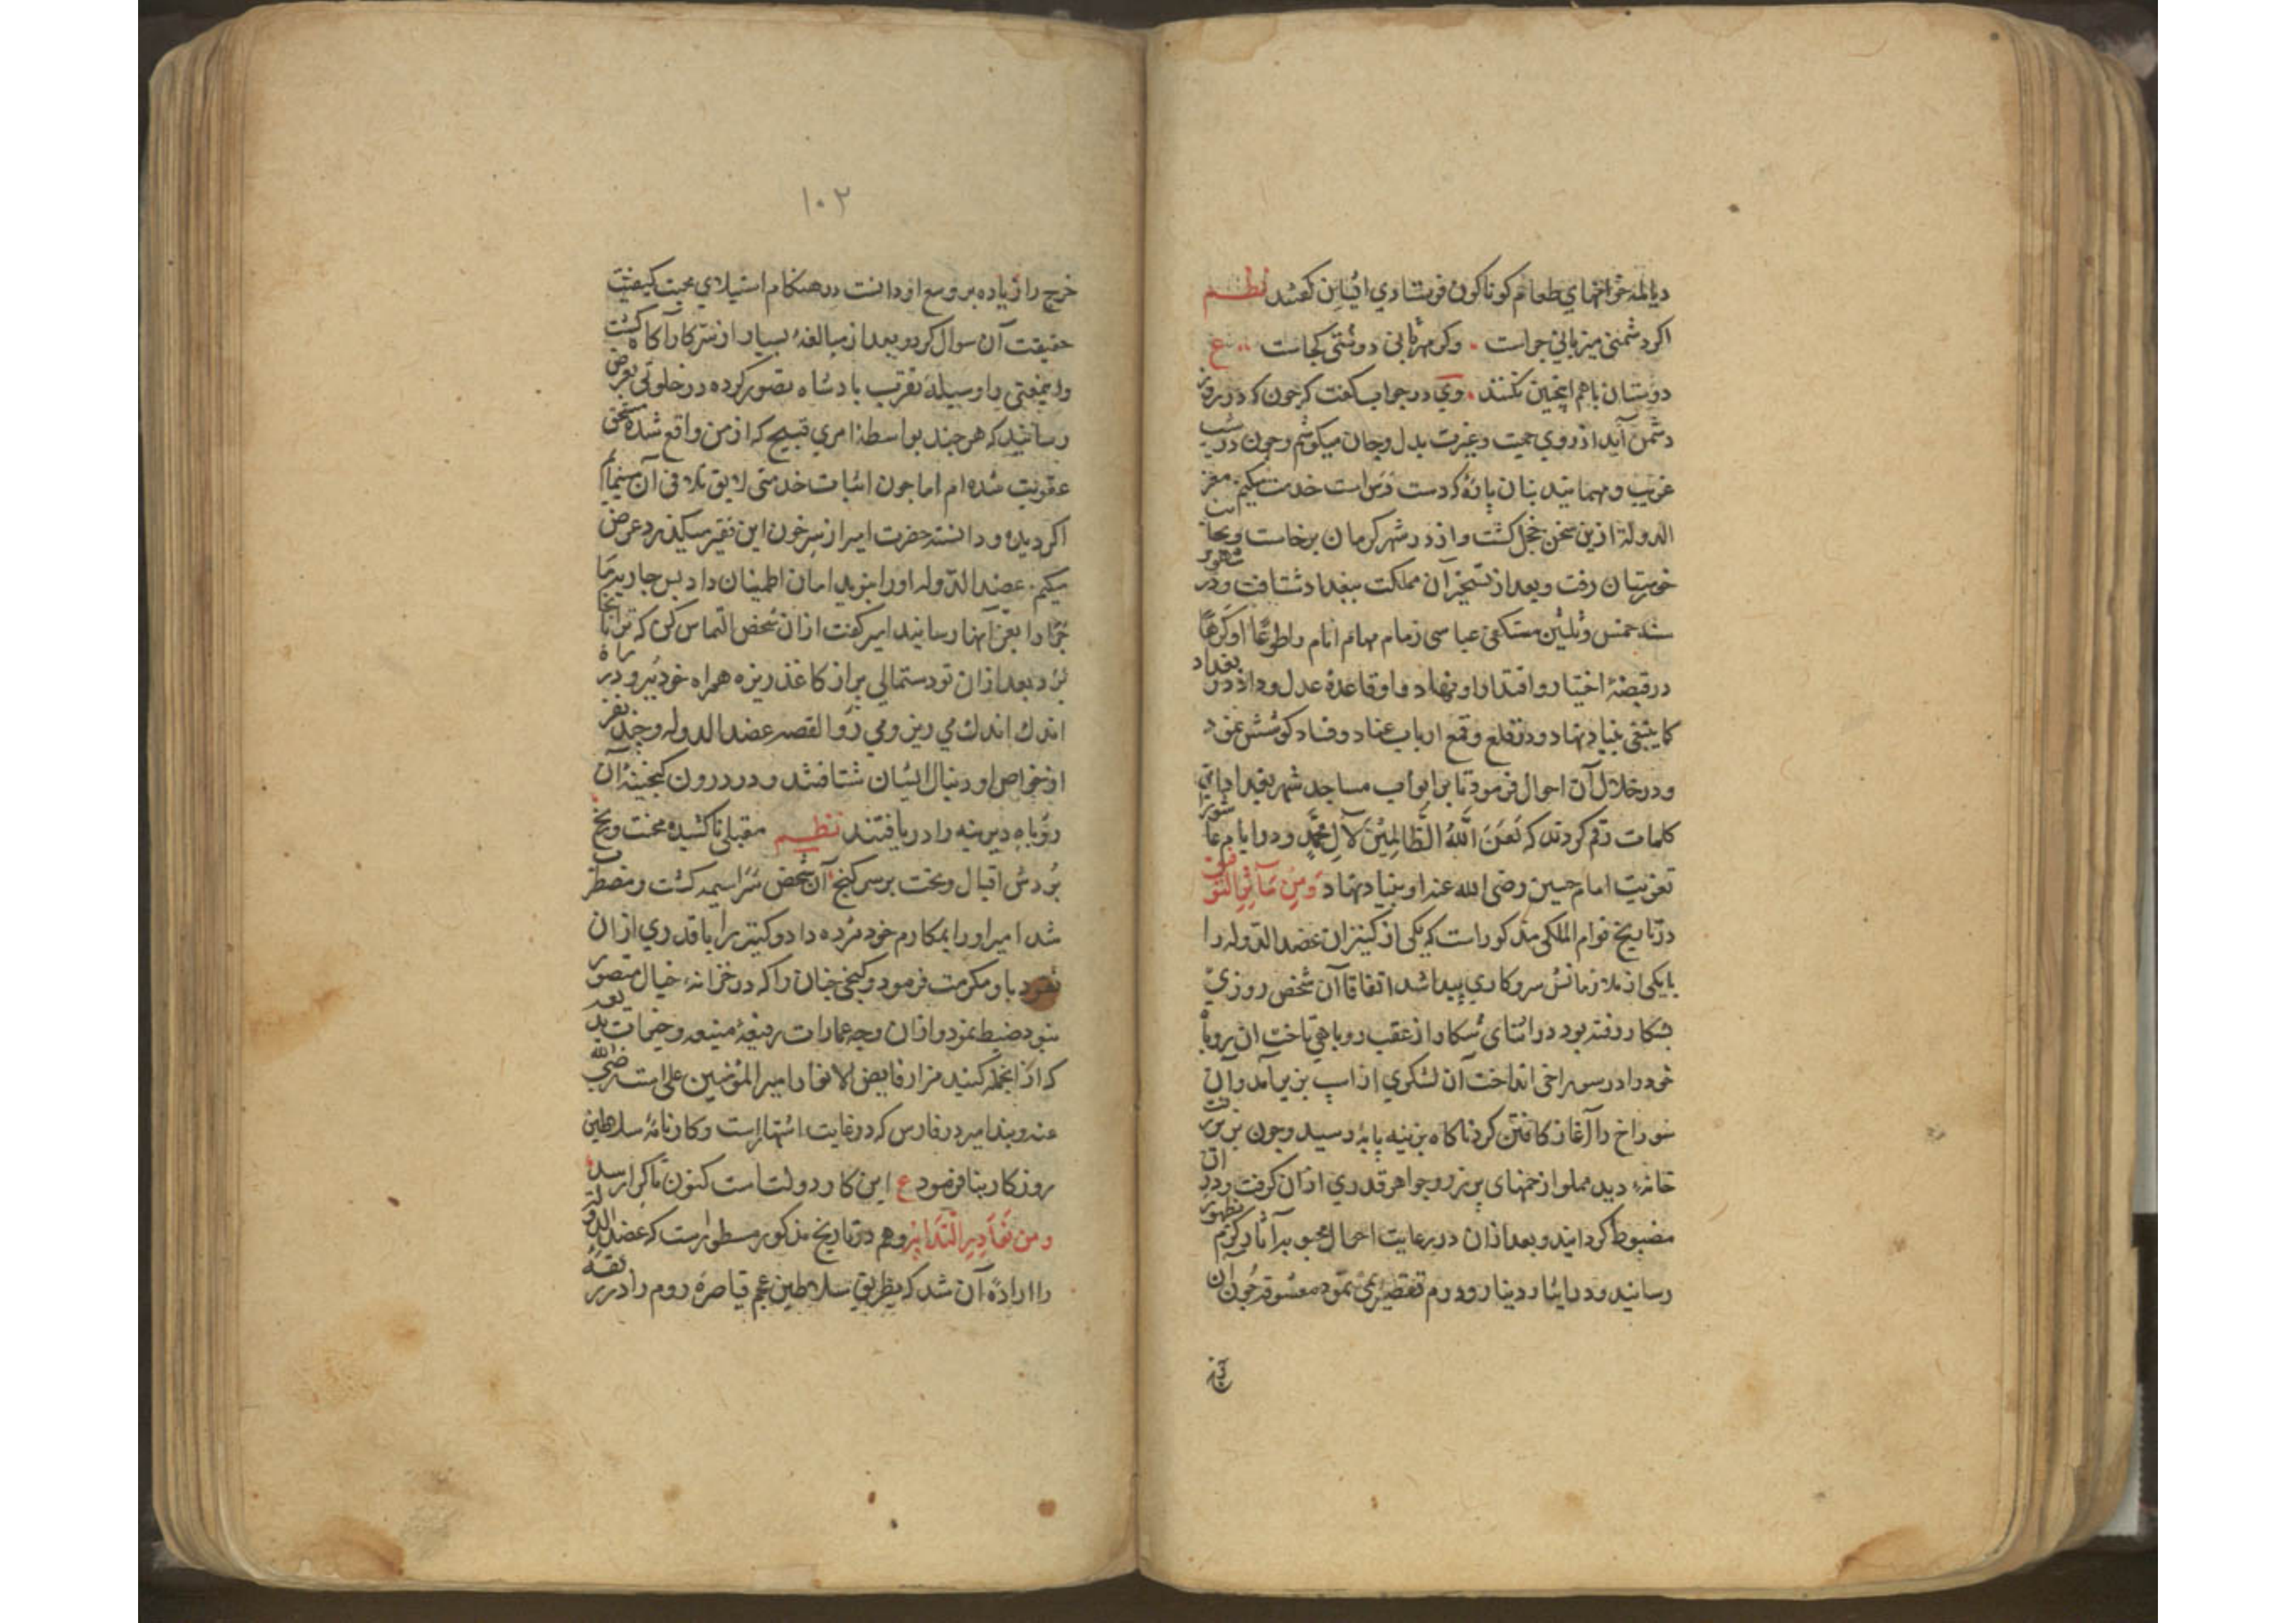 دیالمه خوانهای طعام کوناکون فرستادی ایشان کفتند نظم
اکر دشمنی میزبانی جراست وکر مهربانی دوستی کجاست ع
دوستان باهم اینجنین نکنند وی در جواب کفت که جون که در روز
دشمن آیند از روی حمیت وغیرت بدل وجان میکوشم وجون در شب
غریب ومهمانند بنان پاره که دست رس است خدمت میکنم معز
الدوله ازین سخن خجل کشت واز در شهر کرمان برخاست وبجانب
خوزستان رفت وبعد از تسخیر آن مملکت ببغداد شتافت ودر شهور
سنه خمس وثلثین مستکفی عباسی زمام مهام انام را طوعًا اوکرهًا
در قبضهٔ اختیار واقتدار او نهاد و او قاعدهٔ عدل وداد در بغداد
کما ینبغی بنیاد نهاد ودر قلع وقمع ارباب عناد وفساد کوشش نمود
ودر خلال آن احوال فرمود تا بر ابواب مساجد شهر بغداد این
کلمات رقم کردند که لَعَنَ اللهُ الظَّالِمِیْنَ لآلِ مُحَمَّدٍ ودر ایام عاشورا
تعزیت امام حسین رضی الله عنه او بنیاد نهاد وَمِنْ مَآثِرِ التوفیق
در تاریخ قوام الملکی مذکور است که یکی از کنیزان عضد الدوله را
با یکی از ملازمانش سر وکاری پیدا شد اتفاقا آن شخص روزی
بشکار رفته بود در اثنای شکار از عقب روباهی تاخت آن روباه
خود را در سوراخی انداخت آن لشکری از اسب بزیر آمد وآن
سوراخ را آغاز کافتن کرد ناکاه بزینه پایهٔ رسید وجون بزیر رفت
خانهٔ دید مملو از خمهای پر زر وجواهر قدری ازان کرفت ودر آن
مضبوط کردانید وبعد ازان در رعایت احوال محبوبه آثار کرم بظهور
رسانید ودر ایثار دینار ودرم تقصیری نمی نمود معشوقه جون آن
خرج
۱۰۲
خرج را زیاده بر وسع او دانست در هنکام استیلای محبت کیفیت
حقیقت آن سوال کرد وبعد از مبالغهٔ بسیار از سر کار آکاه کشت
واینمعنی را وسیلهٔ تقرب بادشاه تصور کرده در خلوتی بعرض
رسانید که هر جند بواسطهٔ امری قبیح که از من واقع شده مستحق
عقوبت شده ام اما جون اثبات خدمتی لایق تلافی آن مینمایم
اکر دیده ودانسته حضرت امیر از سر خون این فقیر میکذرد عرض
میکنم عضد الدوله اورا بنوید امان اطمینان داد بس جاریه ما
جرا را بعز آنها رسانید امیر کفت ازان شخص التماس کن که ترا بآنجا
برد بعد ازان تو دستمالی پر از کاغذ ریزه همراه خود ببر ودر راه
اندک اندک می ریز ومی رو القصه عضد الدوله وجند نفر
از خواص او دنبال ایشان شتافتند ودر درون کنجینه آن
روباه دیرینه را دریافتند نظم مقبلی ناکشیده محنت ورنج
بُردش اقبال وبخت بر سر کنج آن شخص سراسیمه کشت ومضطرب
شد امیر اورا بمکارم خود مژده داد وکنیز را با قدری ازان
نقود باو مکرمت فرمود وکنجی جنان را که در خزانهٔ خیال متصور
نبود ضبط نمود وازان وجه عمارات رفیعهٔ منیعه وخیرات بدیعه
که ازانجمله کنبد مزار فایض الانوار امیر المؤمنین علی است رضی الله
عنه وبند امیر در فارس که در غایت اشتهار است وکارنامهٔ سلاطین
روزکار بنا فرمود ع این کار دولت است کنون تا کرا رسد
ومن نَوَادِرِ التَّدَابِیْر وهم در تاریخ مذکور مسطور است که عضد الدوله
را ارادهٔ آن شد که بطریق سلاطین عجم قیاصرهٔ روم را در ربقهٔ